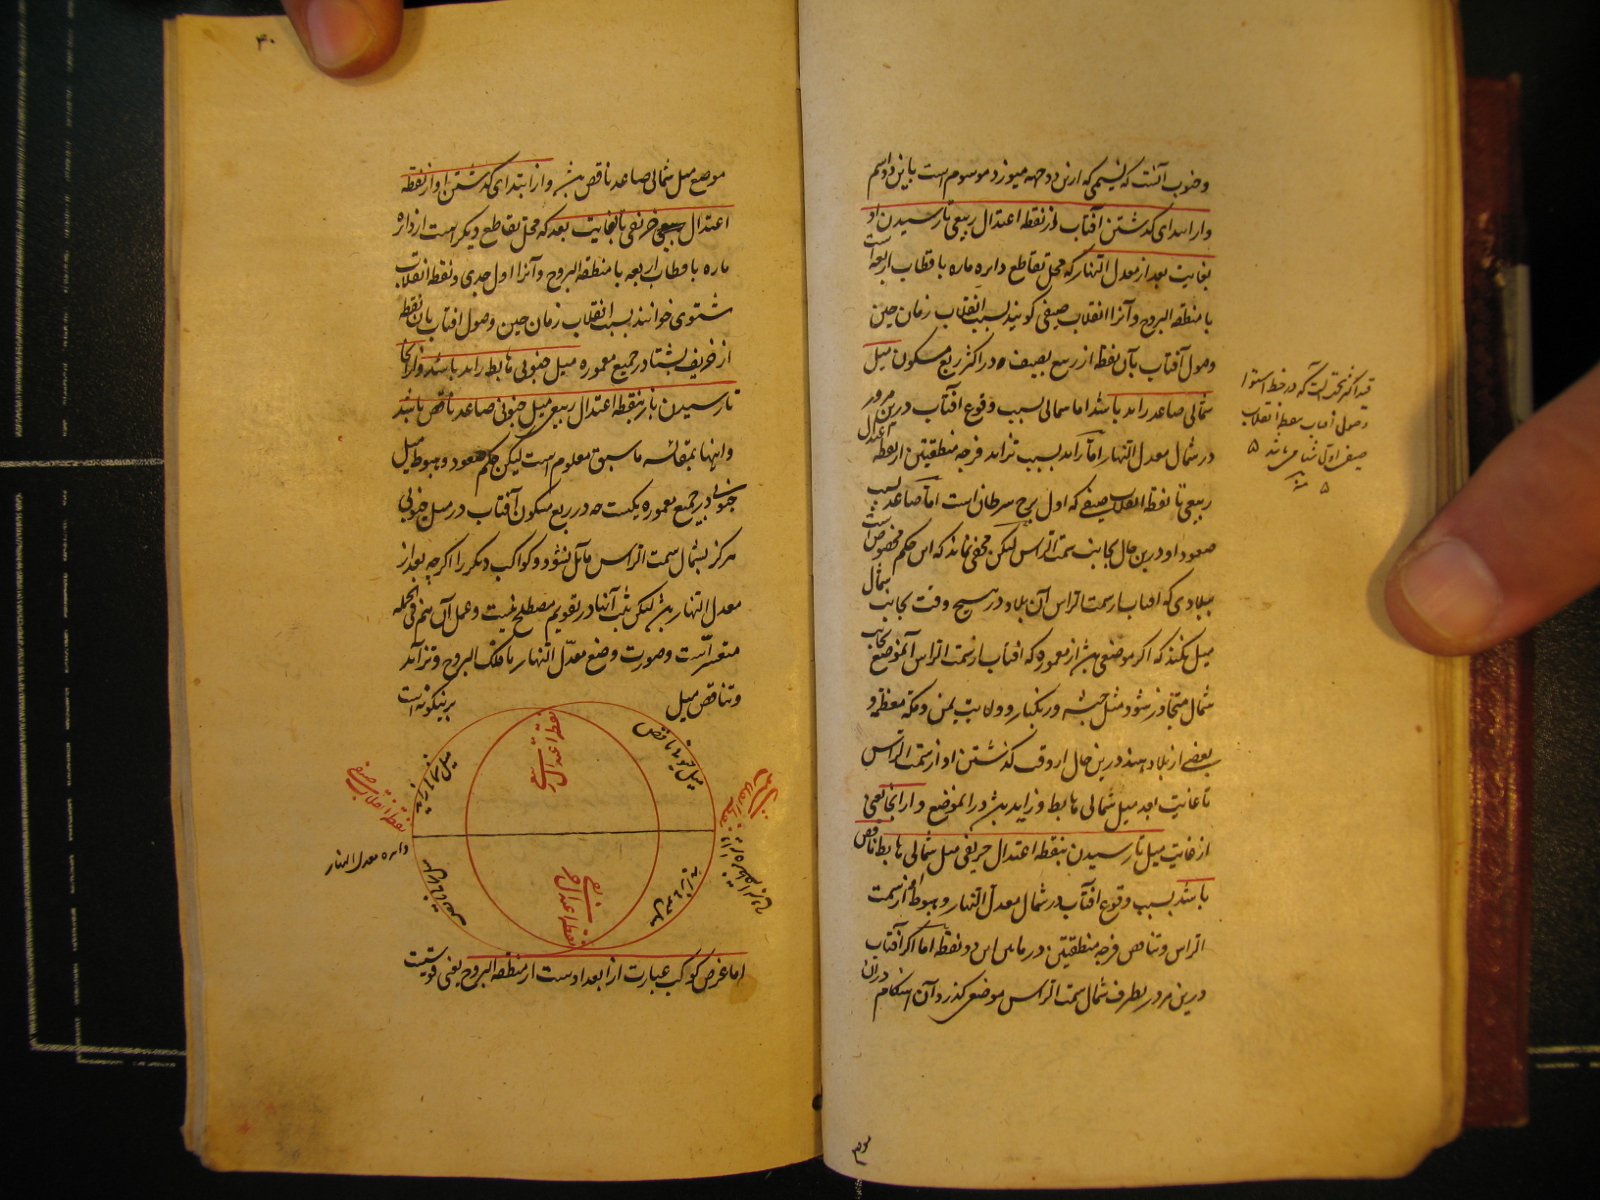 وجنوب آنست که نسیمی که ازین دو جهه میوزد موسوم است باین دو اسم
و از ابتدای گذشتن آفتاب از نقطه اعتدال ربیعی تا رسیدن او
بغایت بعد از معدل النهار که محل تقاطع دایره ماره باقطاب اربعه است
با منطقه البروج و آنرا انقلاب صیفی گویند بسبب انقلاب زمان حین
وصول آفتاب بآن نقطه از ربیع بصیف در اکثر ربع مسکون میل
شمالی صاعد زاید باشد اما شمالی بسبب وقوع آفتاب درین مرور
در شمال معدل النهار اما زاید بسبب تزاید فرجه منطقتین از نقطه اعتدال
ربیعی تا نقطه انقلاب صیفی که اول برج سرطان است اما صاعد بسبب
صعود او درین حال بجانب سمت الراس لیکن مخفی نماند که این حکم مخصوص است
ببلادی که آفتاب از سمت الراس آن بلاد در هیچ وقت بجانب شمال
میل نکند که اگر موضعی باشد از معموره که آفتاب از سمت الراس آنموضع بجانب
شمال متجاوز شود مثل حبشه و زنگبار و ولایت یمن و مکه معظمه و
بعضی از بلاد هند درین حال از وقت گذشتن او از سمت الراس
تا غایت بعد میل شمالی هابط و زاید باشد در آنموضع و از آنجا یعنی
از غایت میل تا رسیدن بنقطه اعتدال خریفی میل شمالی هابط ناقص
باشد بسبب وقوع آفتاب در شمال معدل النهار و هبوط او از سمت
الراس و تناقص فرجه منطقتین در مابین این دو نقطه اما اگر آفتاب
درین مرور بطرف شمال سمت الراس موضعی گذرد آن هنگام در آن
موضع
قید اکثر بجهت آنست که در خط استوا
وصول آفتاب بنقطه انقلاب
۴۰
موضع میل شمالی صاعد ناقص باشد و از ابتدای گذشتن او از نقطه
اعتدال خریفی تا بغایت بعد که محل تقاطع دیگر است از دایره
ماره باقطاب اربعه با منطقه البروج و آنرا اول جدی و نقطه انقلاب
شتوی خوانند بسبب انقلاب زمان حین وصول آفتاب بان نقطه
از خریف بشتا در جمیع معموره میل جنوبی هابط زاید باشد و از آنجا
تا رسیدن باز بنقطه اعتدال ربیعی میل جنوبی صاعد ناقص باشد
و اینها بمقائسه ماسبق معلوم است لیکن حکم صعود و هبوط میل
جنوبی در جمیع معموره یکیست چه در ربع مسکون آفتاب در میل جنوبی
هرگز بشمال سمت الراس مایل نشود و کواکب دیگر را اگرچه بعد از
معدل النهار باشد لیکن ثبت آنها در تقویم مصطلح نیست و عمل آن هم فی الجمله
متعسر است و صورت وضع معدل النهار با فلک البروج و تزاید
و تناقص میل
برینگونه است
نقطه اعتدال ربیعی
میل شمالی زاید
میل جنوبی ناقص
نقطه انقلاب صیفی
نقطه انقلاب شتوی
دایره معدل النهار
نقطه اعتدال خریفی
اما عرض کوکب عبارت از بعد اوست از منطقه البروج یعنی قوسیست